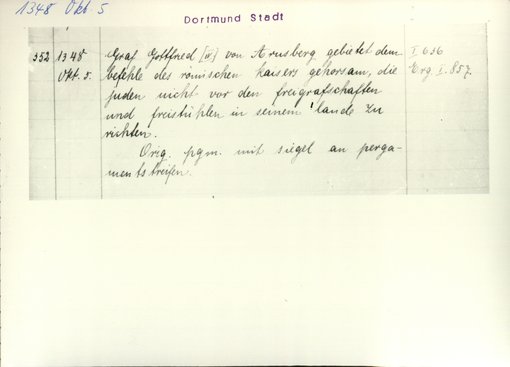 1348 Okt. 5
Dortmund Stadt
352 1348 Graf Gottfried [IV.] von Arnsberg gebietet dem I 636
Okt. 5. befehle des römischen kaisers gehorsam, die Erg I. 857.
juden nicht vor den freigrafschaften
und freistühlen in seinem lande zu
richten.
Orig. pgm. mit siegel an perga-
mentstreifen.